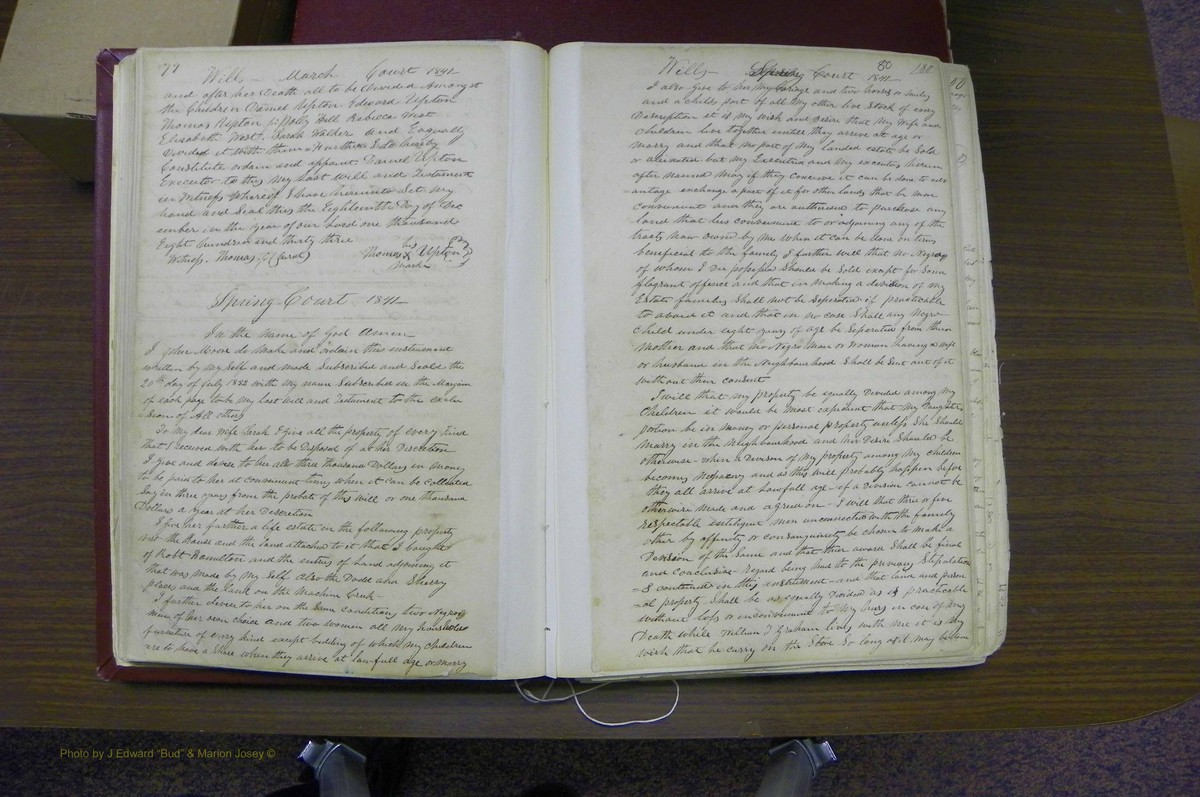 79
Wills - March Court 1841
and after her Death all to be Divided Amongst
the Children Daniel Upton Edward Upton
Thomas Upton Polly Hall Rebecca West
Elisabeth West Sarah Walder and Eaqually
Devided it with them & I hereby
Constitute ordain and appoint Daniel Upton
Executor to this my last will and Testament
in Witness Whereof I have hereunto Set my
hand and Seal this the Eighteenth Day of Dec
ember in the year of our Lord one thousand
Eight hundred and thirty three
his
Witness. Thomas Thomas X Upton
mark
Spring Court 1841
In the name of God Amen
I John Moore do make and ordain this instrument
written by my Self and made Subscribed and Seald the
20th day of July 1832 with my name Subscribed in the Margin
of each page to be my last will and Testament to the exclu
sion of All others
To My dear wife Sarah I give all the property of every kind
that I received with her to be Disposed of at her Discretion
I give and devise to her also three thousand Dollars in money
to be paid to her at convenient times when it can be collected
Say in three years from the probate of this will or one thousand
Dollars a year at her Discretion
I give her further a life estate in the following property
the House and the land attached to it that I bought
of Robt Hamilton and the entries of land adjoining it
that was made by my Self also the Dodd and
places and the land on the Machine Creek
I further devise to her on the Same condition two Negroes
men of her own choice and two women all my household
furniture of every kind except bedding of which my children
are to have a Share when they arrive at lawfull age or marry
Wills Spring Court 1841
80 180
I also give to her my Carriage and two horses or mules
and a childs part of all my other live Stock of every
Description it is my wish and desire that my wife and
children live together untill they arrive at age or
marry and that no part of my landed estate be Sold
or alienated but my Executrix and my executors herein
after named may if they conceive it can be done to adv
antage exchange a part of it for other lands that be more
convenient and they are authorised to purchase any
land that lies convenient to or adjoining any of the
tracts now owned by me when it can be done on terms
beneficial to the family I further will that no Negroe
of whom I Die possessed Should be Sold except for Some
flagrant offence and that in making a division of my
Estate families Shall not be Seperated if practicable
to avoid it and that in no case Shall any Negro
child under eight years of age be Seperated from their
mother and that no Negro Man or Woman having a wife
or husband in the Neighbourhood Shall be Sent out of it
without their consent
I will that my property be equally Divided among my
Children it would be most expedient that my Daughters
portion be in money or personal property unless She Should
marry in the Neighbourhood and her Desire Should be
otherwise - when a Division of my property among my children
becomes Necessary and as this will probably happen before
they all arrive at lawfull age - if a Division cannot be
otherwise made and agreed on - I will that three or five
respectable intelligent men unconnected with the family
either by affinity or consanguinity be chosen to make a
Division of the Same and that their award Shall be final
and conclusive - regard being had to the previous Stipulation
-S contained in this instrument - and that land and person
-al property Shall be as equally Divided as is practicable
without loss or inconvenience to my heirs in case of my
Death while William J Graham lives with me it is my
wish that he carry on the Store So long as it may be
Photo by J Edward "Bud" & Marion Josey ©